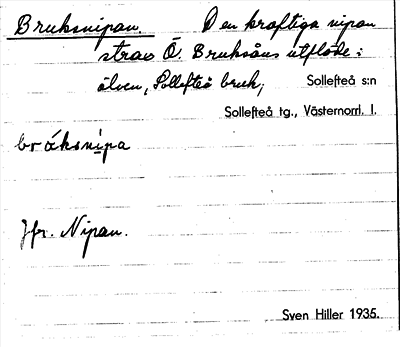 Bruksnipan. Den kraftiga nipan
strax Ö. Bruksåns utflöde i
älven, Sollefteå bruk, Sollefteå s:n
Sollefteå tg., Västernorrl. l.
Jfr. Nipan.
Sven Hiller 1935.